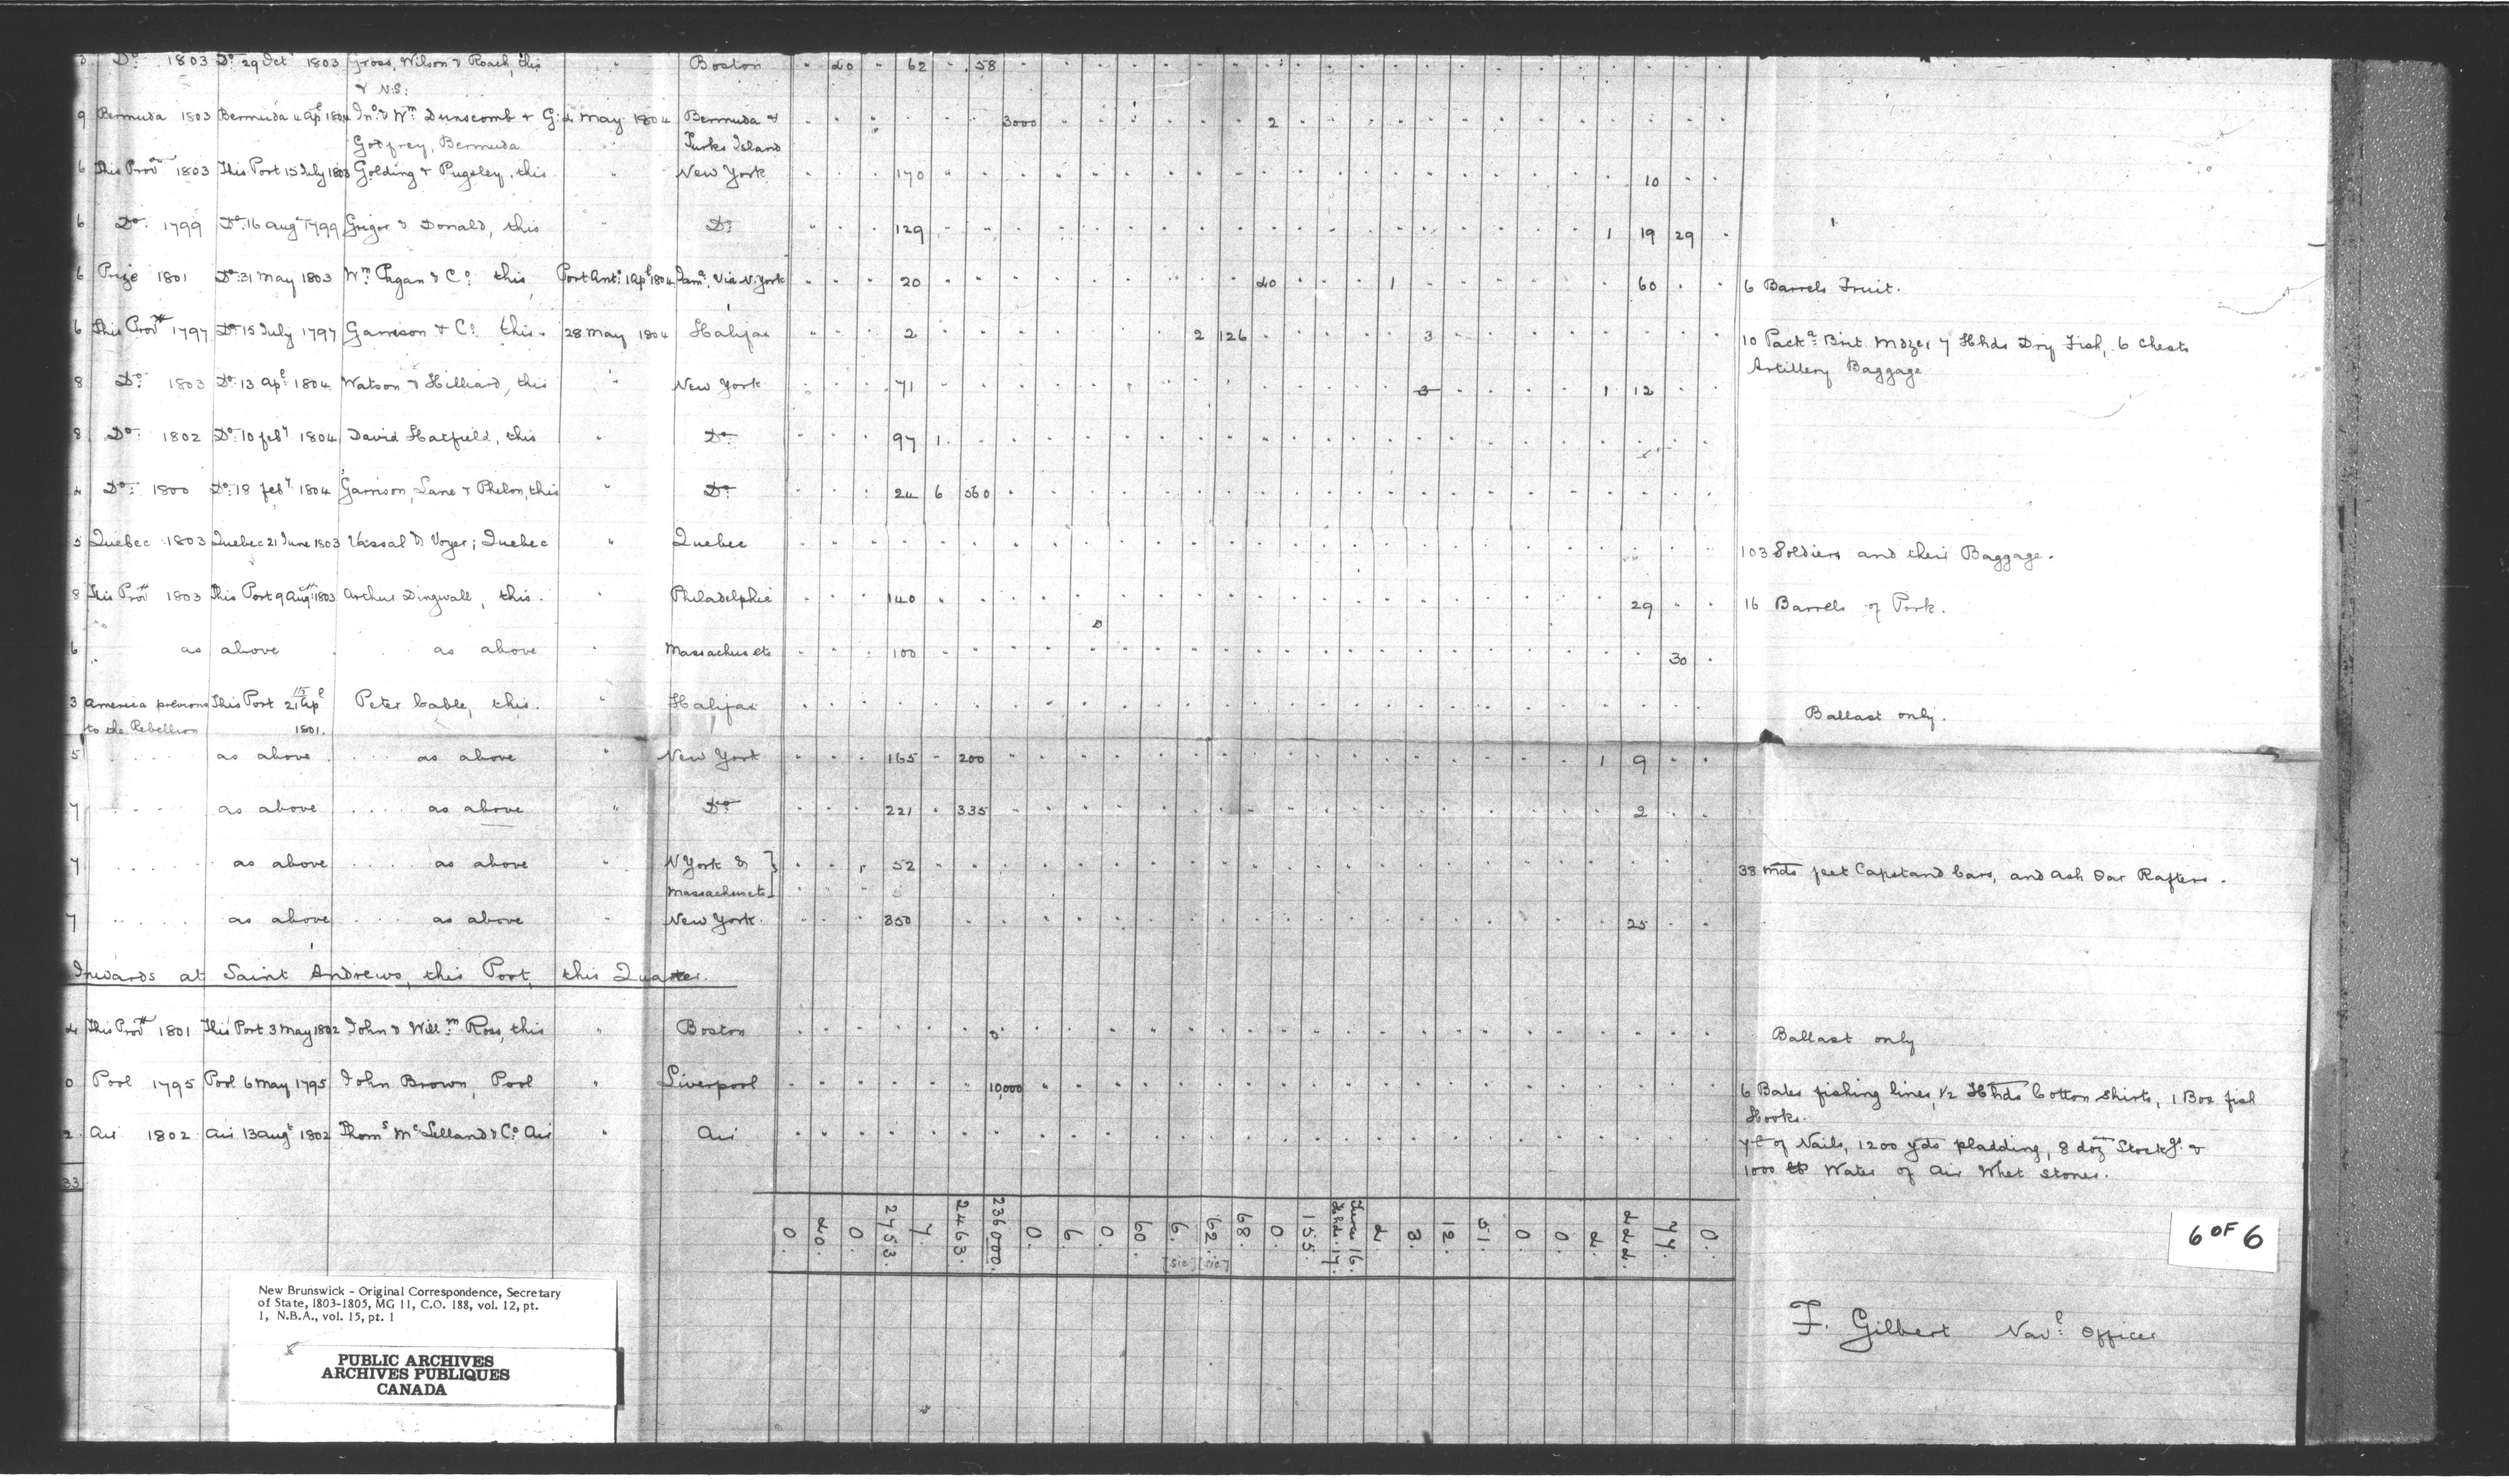 Do: 1803 Do 29 Oct 1803 Gross, Wilson & Roach, this " Boston 40 62 58
& N.S:
9 Bermuda 1803 Bermuda 4 Apl 1804 Jno & Wm Dunscomb & G: 4 May 1804 Bermuda & 3000 2
Godfrey, Bermuda Turks Island
6 This Prov 1803 This Port 15 July 1803 Golding & Pugsley, this " New York 170 10
6 Do: 1799 Do: 16 Aug 1799 Grigor & Donald, this " Do: 129 1 19 29
6 Prize 1801 Do: 31 May 1803 Wm Pagan & Co: this Port Ant: 1 Apl 1804 Jama, Via N. York 20 40 1 60 6 Barrels Fruit.
6 This Prov 1797 Do: 15 July 1797 Garrison & Co: this. 28 May 1804 Halifax 2 2 126 3 10 Packs Brit. Mdze, 7 Hhds Dry Fish, 6 Chests
Artillery Baggage
8 Do: 1803 Do: 13 Apl: 1804 Watson & Hilliard, this " New York 71 3 1 12
8 Do: 1802 Do: 10 feby 1804 David Hatfield, this " Do: 97 1
4 Do: 1800 Do: 18 feby 1804 Garrison, Lane & Phelon, this " Do: 24 6 560
5 Quebec 1803 Quebec 21 June 1803 Vassal & Voyer; Quebec " Quebec 103 Soldiers and their Baggage.
8 This Prov 1803 This Port 9 Aug: 1803 Arthur Dingwall, this. " Philadelphia 140 29 16 Barrels of Pork.
6 as above as above " Massachusets 100 30
3 America previous This Port 21 Apl Peter Cable, this. " Halifax Ballast only.
to the Rebellion 1801.
5 as above as above " New York 165 200 1 9
7 as above as above " Do 221 335 2
7 as above as above " N York & } 52 38 mds feet Capstand bars, and Ash Oar Rafters.
Massachusets }
7 as above as above " New York. 350 25
Inwards at Saint Andrews, this Port, this Quarter.
4 This Prov 1801 This Port 3 May 1802 John & Willm Ross, this " Boston Ballast only
0 Pool 1795 Pool 6 May 1795 John Brown, Pool " Liverpool 10,000 6 Bales fishing lines, 1/2 Hhds Cotton Shirts, 1 Box fish
Hooks.
2 Air 1802 Air 13 Augt 1802 Thoms McLelland & Co Air " Air of Nails, 1200 yds pladding, 8 doz Stockgs. &
1000 lb Water of Air Whet stones.
33
0. 40. 0. 2753. 7. 2463. 236000. 0. 6. 0. 60. 6. [sic] 62. [sic] 68. 0. 155. Tierces 16. Hhds. 17. 4. 3. 12. 51. 0. 0. 4. 444. 77. 0.
6 OF 6
New Brunswick - Original Correspondence, Secretary
of State, 1803-1805, MG 11, C.O. 188, vol. 12, pt.
1, N.B.A., vol. 15, pt. 1
F. Gilbert Navl: Officer
PUBLIC ARCHIVES
ARCHIVES PUBLIQUES
CANADA